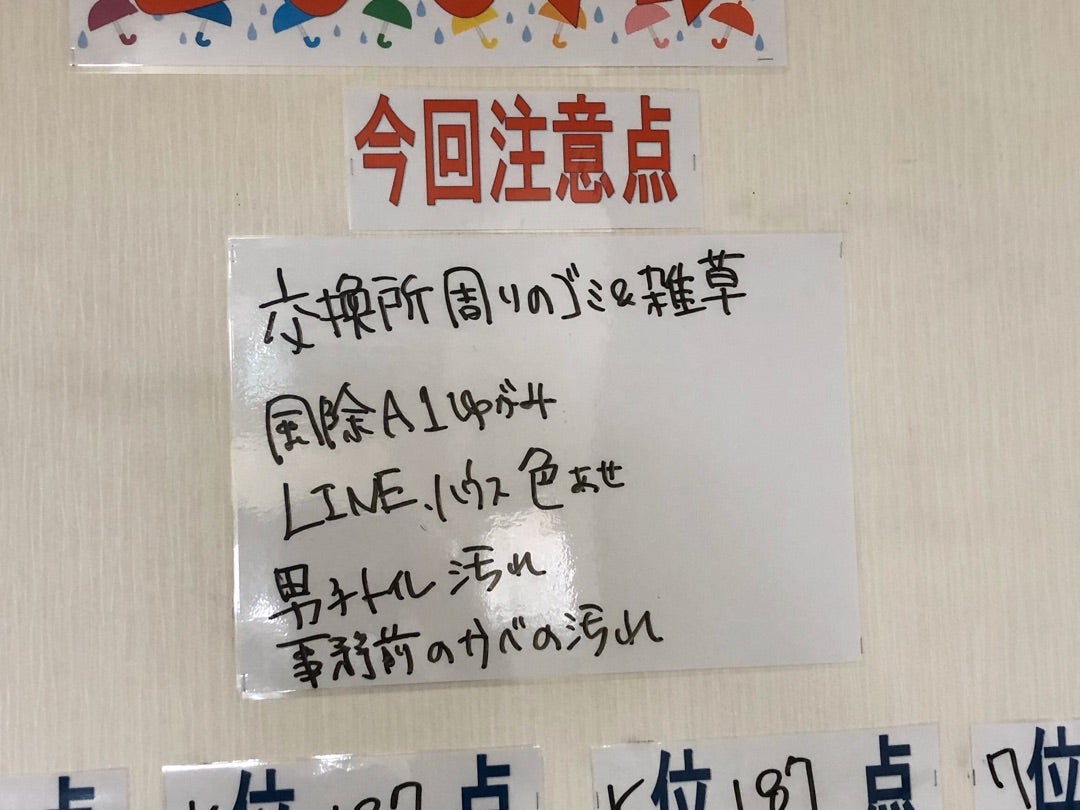 今回注意点
交換所周りのゴミ&雑草
風除A1ゆがみ
LINE、ハウス色あせ
男子トイレ汚れ
事務所前のかべの汚れ
点
位187点
位187点
7位